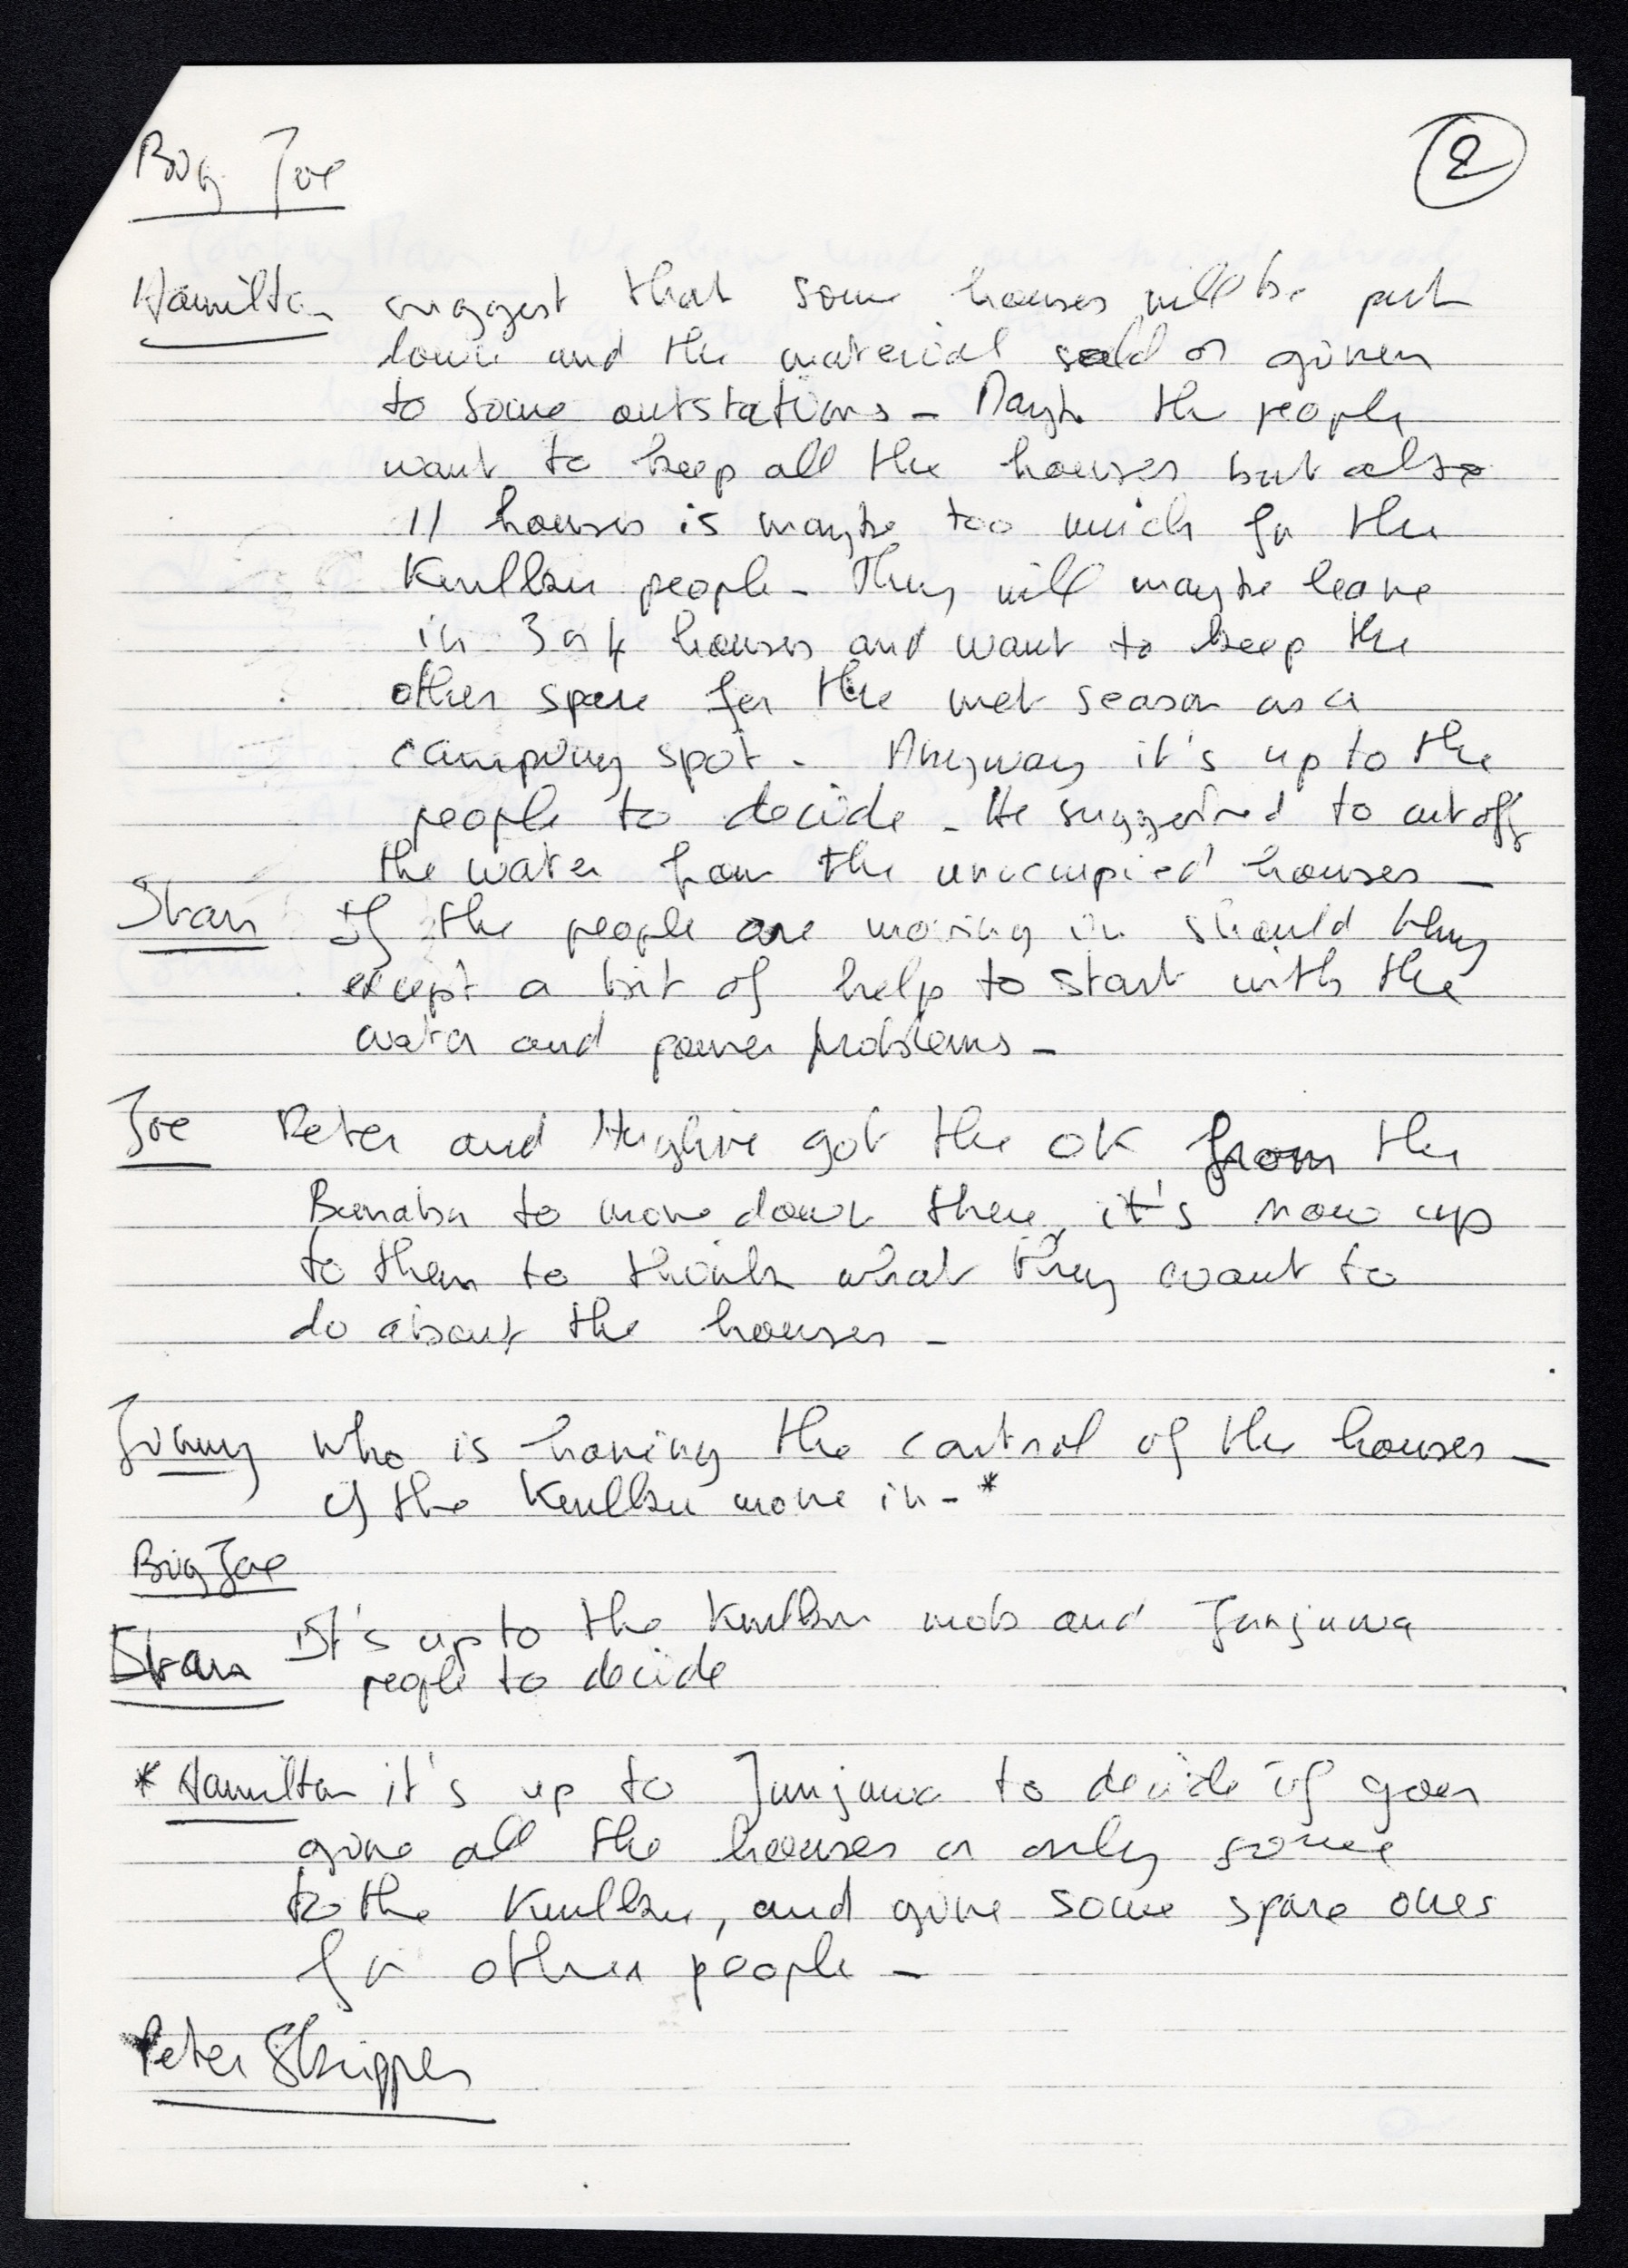 Big Joe
2
Hamilton suggest that some houses will be put
down and the material sold or given
to some outstations - Maybe the people
want to keep all the houses but also
11 houses is maybe too much for the
Kurllku people - They will maybe leave
in 3 or 4 houses and want to keep the
other spare for the wet season as a
camping spot - Anyway it's up to the
people to decide - He suggested to cut off
the water from the unoccupied houses -
Stan If the people are moving in should they
except a bit of help to start with the
water and power problems -
Joe Peter and Hughie got the OK from the
Bunaba to move down there, it's now up
to them to think what they want to
do about the houses -
Jimmy Who is having the control of the houses -
if the Kurllku move in - *
Big Joe
Stan It's up to the Kurllku mob and Junjuwa
people to decide
* Hamilton it's up to Junjuwa to decide if goes
give all the houses or only some
to the Kurllku, and give some spare ones
for other people -
Peter Skipper